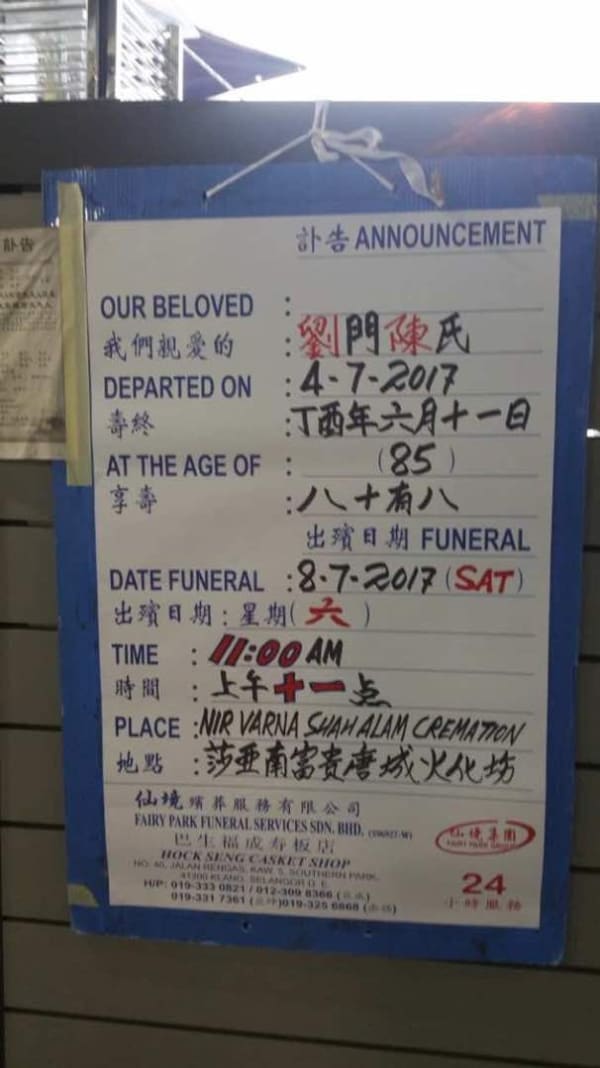 訃告
訃告 ANNOUNCEMENT
OUR BELOVED :
我們親愛的 : 劉門陳氏
DEPARTED ON : 4-7-2017
壽終 : 丁酉年六月十一日
AT THE AGE OF : (85)
享壽 : 八十有八
出殯日期 FUNERAL
DATE FUNERAL : 8-7-2017 (SAT)
出殯日期 : 星期(六)
TIME : 11:00 AM
時間 : 上午十一点
PLACE : NIRVARNA SHAH ALAM CREMATION
地點 : 莎亞南富貴唐城火化坊
仙境殯葬服務有限公司
FAIRY PARK FUNERAL SERVICES SDN. BHD.
巴生福成寿板店
HOCK SENG CASKET SHOP
NO. 40, JALAN RENGAS, KAW. 5, SOUTHERN PARK,
41200 KLANG, SELANGOR D. E.
H/P: 019-333 0821 / 012-309 8366
019-331 7361 019-325 6868
仙境集團
FAIRY PARK GROUP
24
小時服務